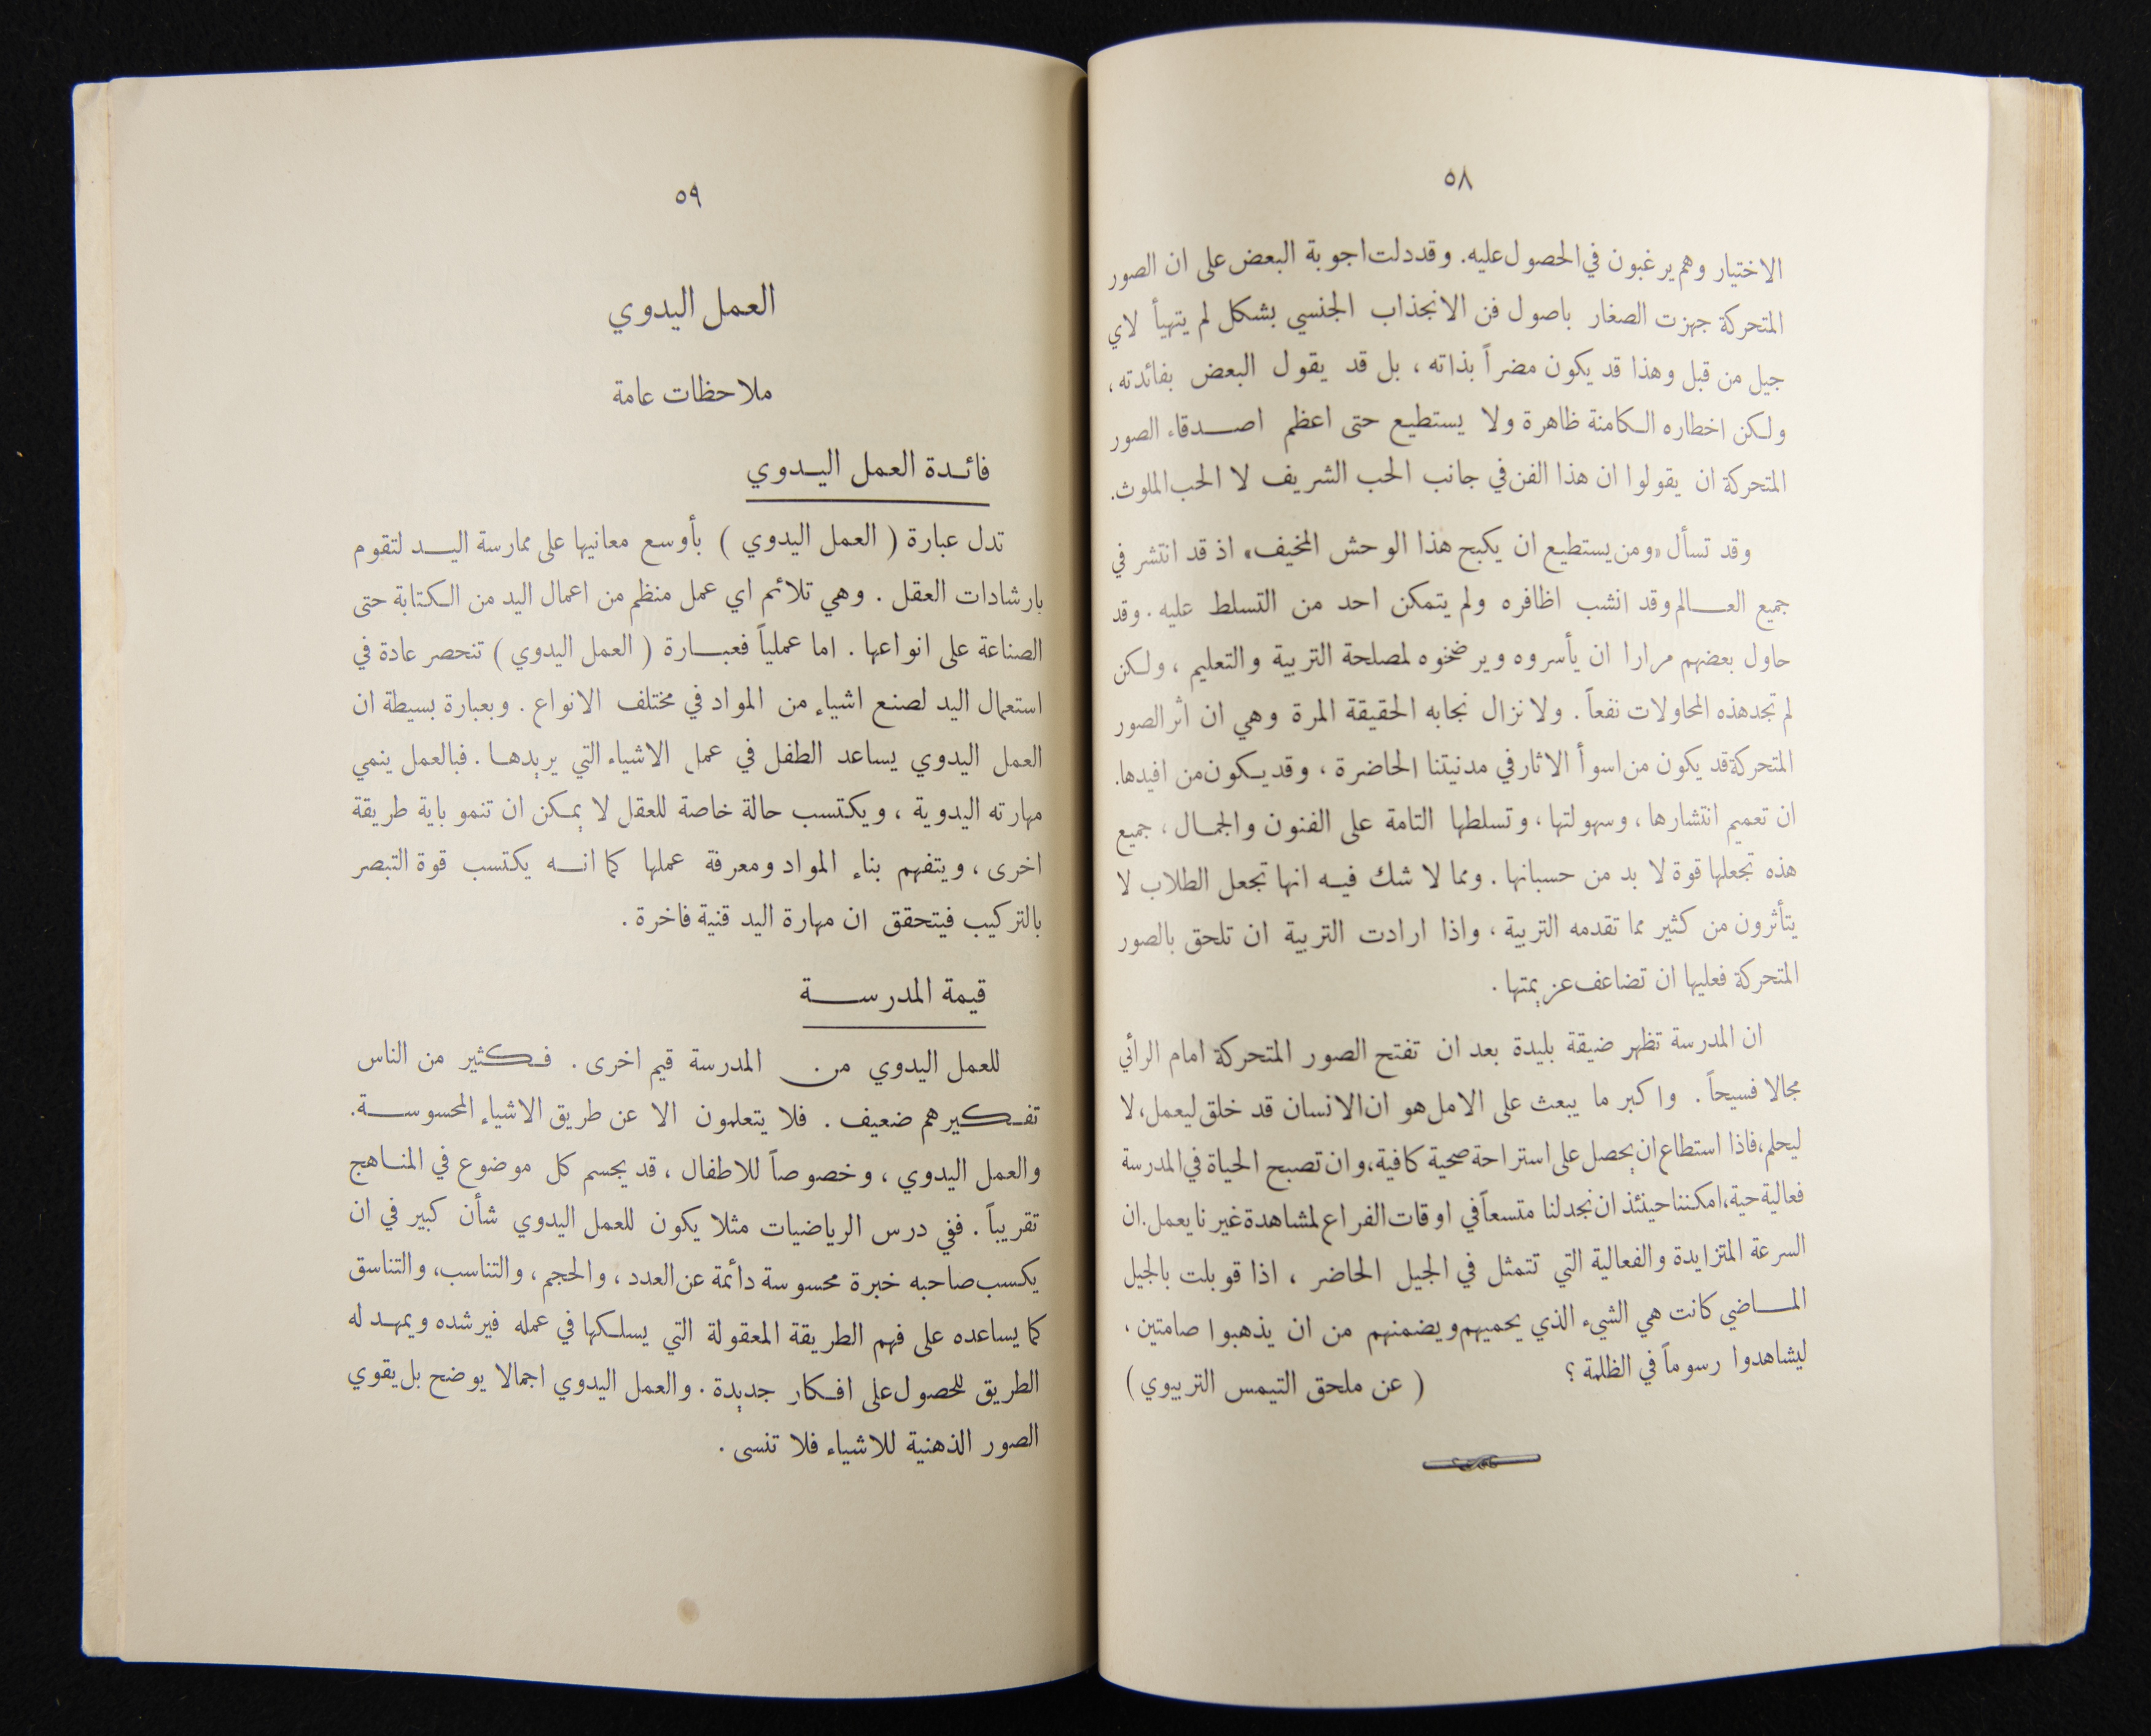 ٥٨
الاختيار وهم يرغبون في الحصول عليه. وقد دلت اجوبة البعض على ان الصور
المتحركة جهزت الصغار باصول فن الانجذاب الجنسي بشكل لم يتهيأ لاي
جيل من قبل وهذا قد يكون مضراً بذاته ، بل قد يقول البعض بفائدته ،
ولكن اخطاره الكامنة ظاهرة ولا يستطيع حتى اعظم اصدقاء الصور
المتحركة ان يقولوا ان هذا الفن في جانب الحب الشريف لا الحب الملوث.
وقد تسأل «ومن يستطيع ان يكبح هذا الوحش المخيف» اذ قد انتشر في
جميع العالم وقد انشب اظافره ولم يتمكن احد من التسلط عليه . وقد
حاول بعضهم مرارا ان يأسروه ويرضخوه لمصلحة التربية والتعليم ، ولكن
لم تجد هذه المحاولات نفعاً . ولا نزال نجابه الحقيقة المرة وهي ان اثر الصور
المتحركة قد يكون من اسوأ الاثار في مدنيتنا الحاضرة ، وقد يكون من افيدها.
ان تعميم انتشارها ، وسهولتها ، وتسلطها التامة على الفنون والجمال ، جميع
هذه تجعلها قوة لا بد من حسبانها . ومما لا شك فيه انها تجعل الطلاب لا
يتأثرون من كثير مما تقدمه التربية ، واذا ارادت التربية ان تلحق بالصور
المتحركة فعليها ان تضاعف عزيمتها .
ان المدرسة تظهر ضيقة بليدة بعد ان تفتح الصور المتحركة امام الرائي
مجالا فسيحاً . واكبر ما يبعث على الامل هو ان الانسان قد خلق ليعمل، لا
ليحلم، فاذا استطاع ان يحصل على استراحة صحية كافية، وان تصبح الحياة في المدرسة
فعالية حية، امكننا حينئذ ان نجد لنا متسعاً في اوقات الفراع لمشاهدة غيرنا يعمل. ان
السرعة المتزايدة والفعالية التي تتمثل في الجيل الحاضر ، اذا قوبلت بالجيل
الماضي كانت هي الشيء الذي يحميهم ويضمنهم من ان يذهبوا صامتين ،
ليشاهدوا رسوماً في الظلمة ؟ ( عن ملحق التيمس التربيوي )
٥٩
العمل اليدوي
ملاحظات عامة
فائدة العمل اليدوي
تدل عبارة ( العمل اليدوي ) بأوسع معانيها على ممارسة اليد لتقوم
بارشادات العقل . وهي تلائم اي عمل منظم من اعمال اليد من الكتابة حتى
الصناعة على انواعها . اما عملياً فعبارة ( العمل اليدوي ) تنحصر عادة في
استعمال اليد لصنع اشياء من المواد في مختلف الانواع . وبعبارة بسيطة ان
العمل اليدوي يساعد الطفل في عمل الاشياء التي يريدها . فبالعمل ينمي
مهارته اليدوية ، ويكتسب حالة خاصة للعقل لا يمكن ان تنمو باية طريقة
اخرى ، ويتفهم بناء المواد ومعرفة عملها كما انه يكتسب قوة التبصر
بالتركيب فيتحقق ان مهارة اليد قنية فاخرة .
قيمة المدرسة
للعمل اليدوي من المدرسة قيم اخرى . فكثير من الناس
تفكيرهم ضعيف . فلا يتعلمون الا عن طريق الاشياء المحسوسة.
والعمل اليدوي ، وخصوصاً للاطفال ، قد يجسم كل موضوع في المناهج
تقريباً . ففي درس الرياضيات مثلا يكون للعمل اليدوي شأن كبير في ان
يكسب صاحبه خبرة محسوسة دائمة عن العدد ، والحجم ، والتناسب، والتناسق
كما يساعده على فهم الطريقة المعقولة التي يسلكها في عمله فيرشده ويمهد له
الطريق للحصول على افكار جديدة . والعمل اليدوي اجمالا يوضح بل يقوي
الصور الذهنية للاشياء فلا تنسى .